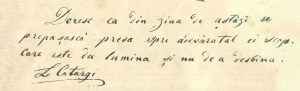 Doresc ca din ziua de astăzi se
prepășească presa spre adevăratul ei scop
care este da lumina și nu de a desbina.
L Catargi